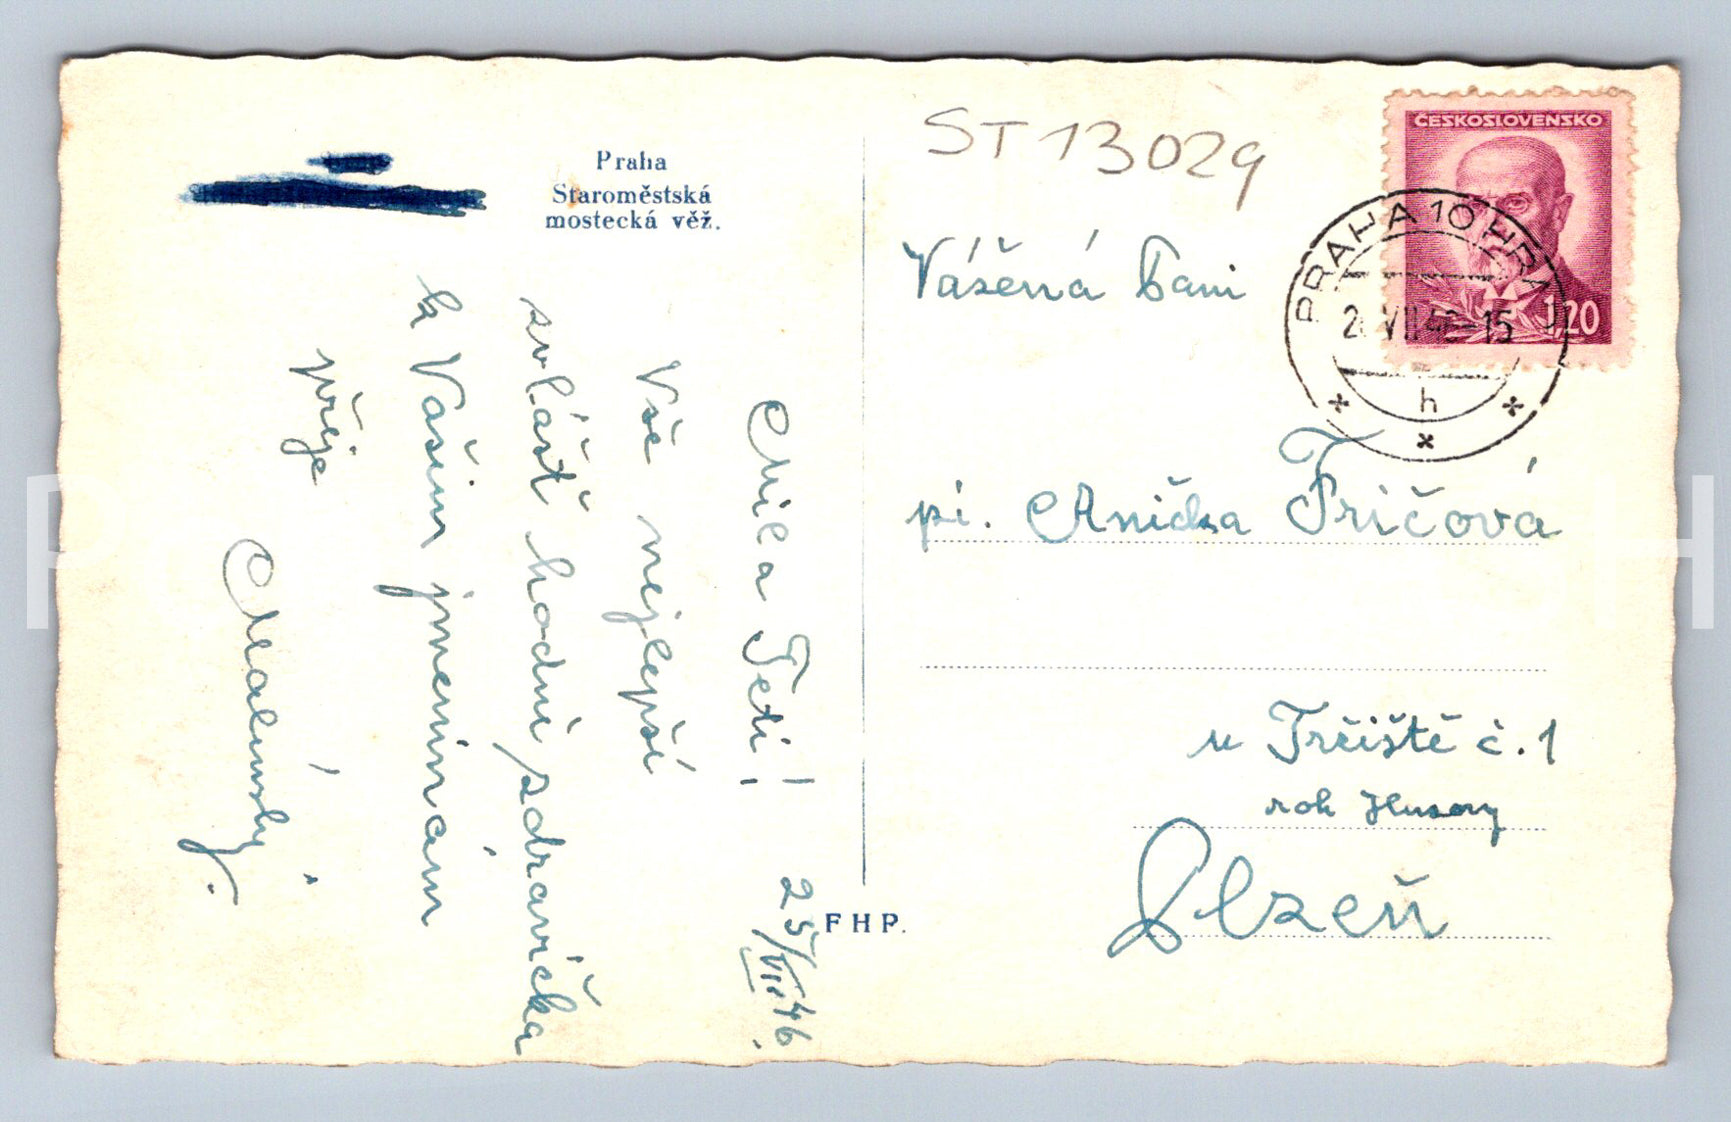 Praha
Staroměstská
mostecká věž.
Milá Teti!
25/VII.46.
Vše nejlepší
zvlášť hodně zdravíčka
k Vašim jmeninám
přeje
F H P.
ST 13029
ČESKOSLOVENSKO
1,20
PRAHA 10 HRA
VII 15
h
Vážená Paní
pí. Anička Fričová
u Tržiště č. 1
roh Husovy
Plzeň